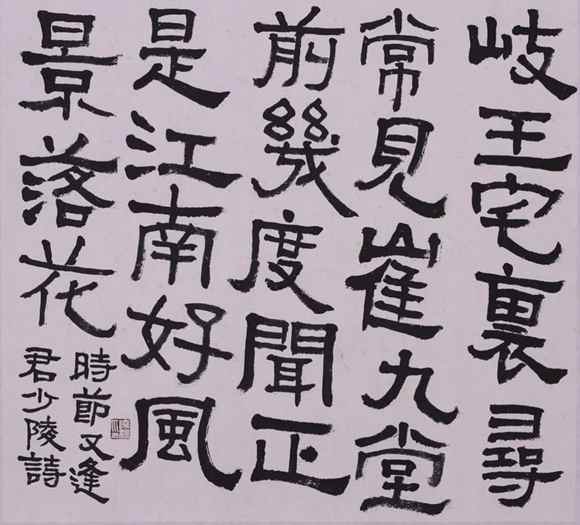 岐王宅裏尋
常見崔九堂
前幾度聞正
是江南好風
景落花
時節又逢
君少陵詩